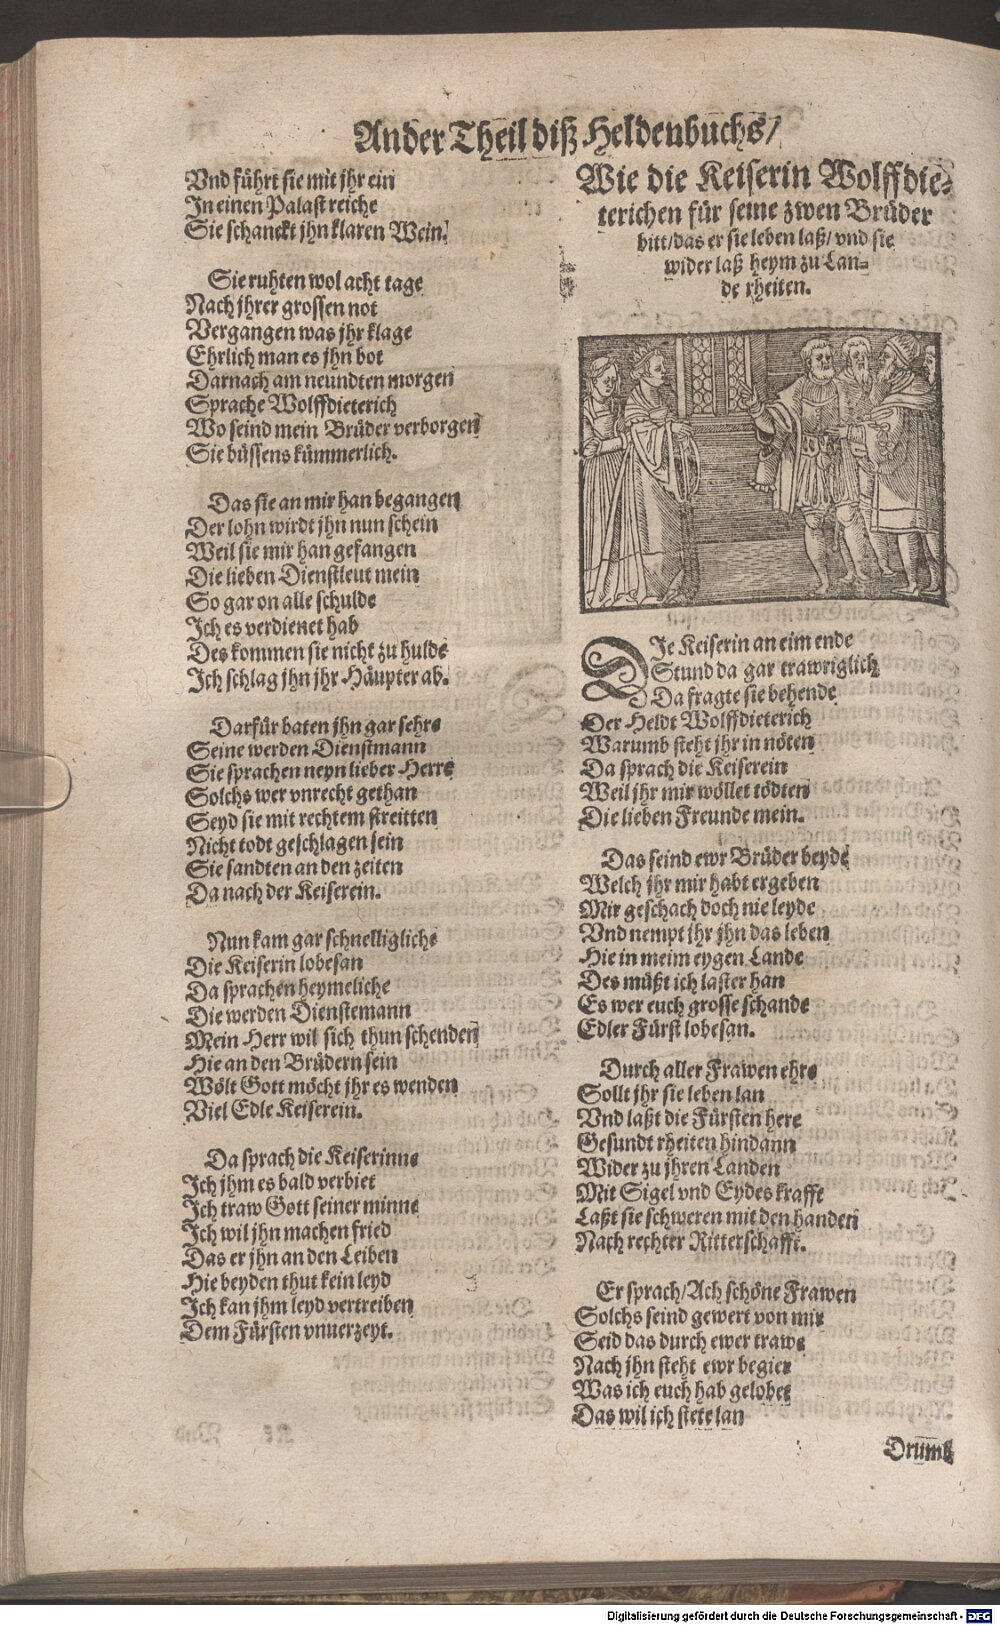 Ander Theil diß Heldenbuchs/
Vnd führt sie mit jhr ein
In einen Palast reiche
Sie schanckt jhn klaren Wein.
Sie ruhten wol acht tage
Nach jhrer grossen not
Vergangen was jhr klage
Ehrlich man es jhn bot
Darnach am neundten morgen
Sprache Wolffdieterich
Wo seind mein Brüder verborgen
Sie büssens kümmerlich.
Das sie an mir han begangen
Der lohn wirdt jhn nun schein
Weil sie mir han gefangen
Die lieben Dienstleut mein
So gar on alle schulde
Ich es verdienet hab
Des kommen sie nicht zu hulde
Ich schlag jhn jhr Häupter ab.
Darfür baten jhn gar sehre
Seine werden Dienstmann
Sie sprachen neyn lieber Herre
Solchs wer vnrecht gethan
Seyd sie mit rechtem streitten
Nicht todt geschlagen sein
Sie sandten an den zeiten
Da nach der Keiserein.
Nun kam gar schnelligliche
Die Keiserin lobesan
Da sprachen heymeliche
Die werden Dienstemann
Mein Herr wil sich thun schenden
Hie an den Brüdern sein
Wölt Gott möcht jhr es wenden
Viel Edle Keiserein.
Da sprach die Keiserinne
Ich jhm es bald verbiet
Ich traw Gott seiner minne
Ich wil jhn machen fried
Das er jhn an den Leiben
Hie beyden thut kein leyd
Ich kan jhm leyd vertreiben
Dem Fürsten vnuerzeyt.
Wie die Keiserin Wolffdie-
terichen für seine zwen Brüder
bitt/das er sie leben laß/vnd sie
wider laß heym zu Lan-
de rheiten.
DIe Keiserin an eim ende
Stund da gar trawriglich
Da fragte sie behende
Der Heldt Wolffdieterich
Warumb steht jhr in nöten
Da sprach die Keiserein
Weil jhr mir wöllet tödten
Die lieben Freunde mein.
Das seind ewr Brüder beyde
Welch jhr mir habt ergeben
Mir geschach doch nie leyde
Vnd nempt jhr jhn das leben
Hie in meim eygen Lande
Des müßt ich laster han
Es wer euch grosse schande
Edler Fürst lobesan.
Durch aller Frawen ehre
Sollt jhr sie leben lan
Vnd laßt die Fürsten here
Gesundt rheiten hindann
Wider zu jhren Landen
Mit Sigel vnd Eydes krafft
Laßt sie schweren mit den handen
Nach rechter Ritterschafft.
Er sprach/Ach schöne Frawen
Solchs seind gewert von mir
Seid das durch ewer trawe
Nach jhn steht ewr begier
Was ich euch hab gelobet
Das wil ich stete lan
Drumb
Digitalisierung gefördert durch die Deutsche Forschungsgemeinschaft - DFG